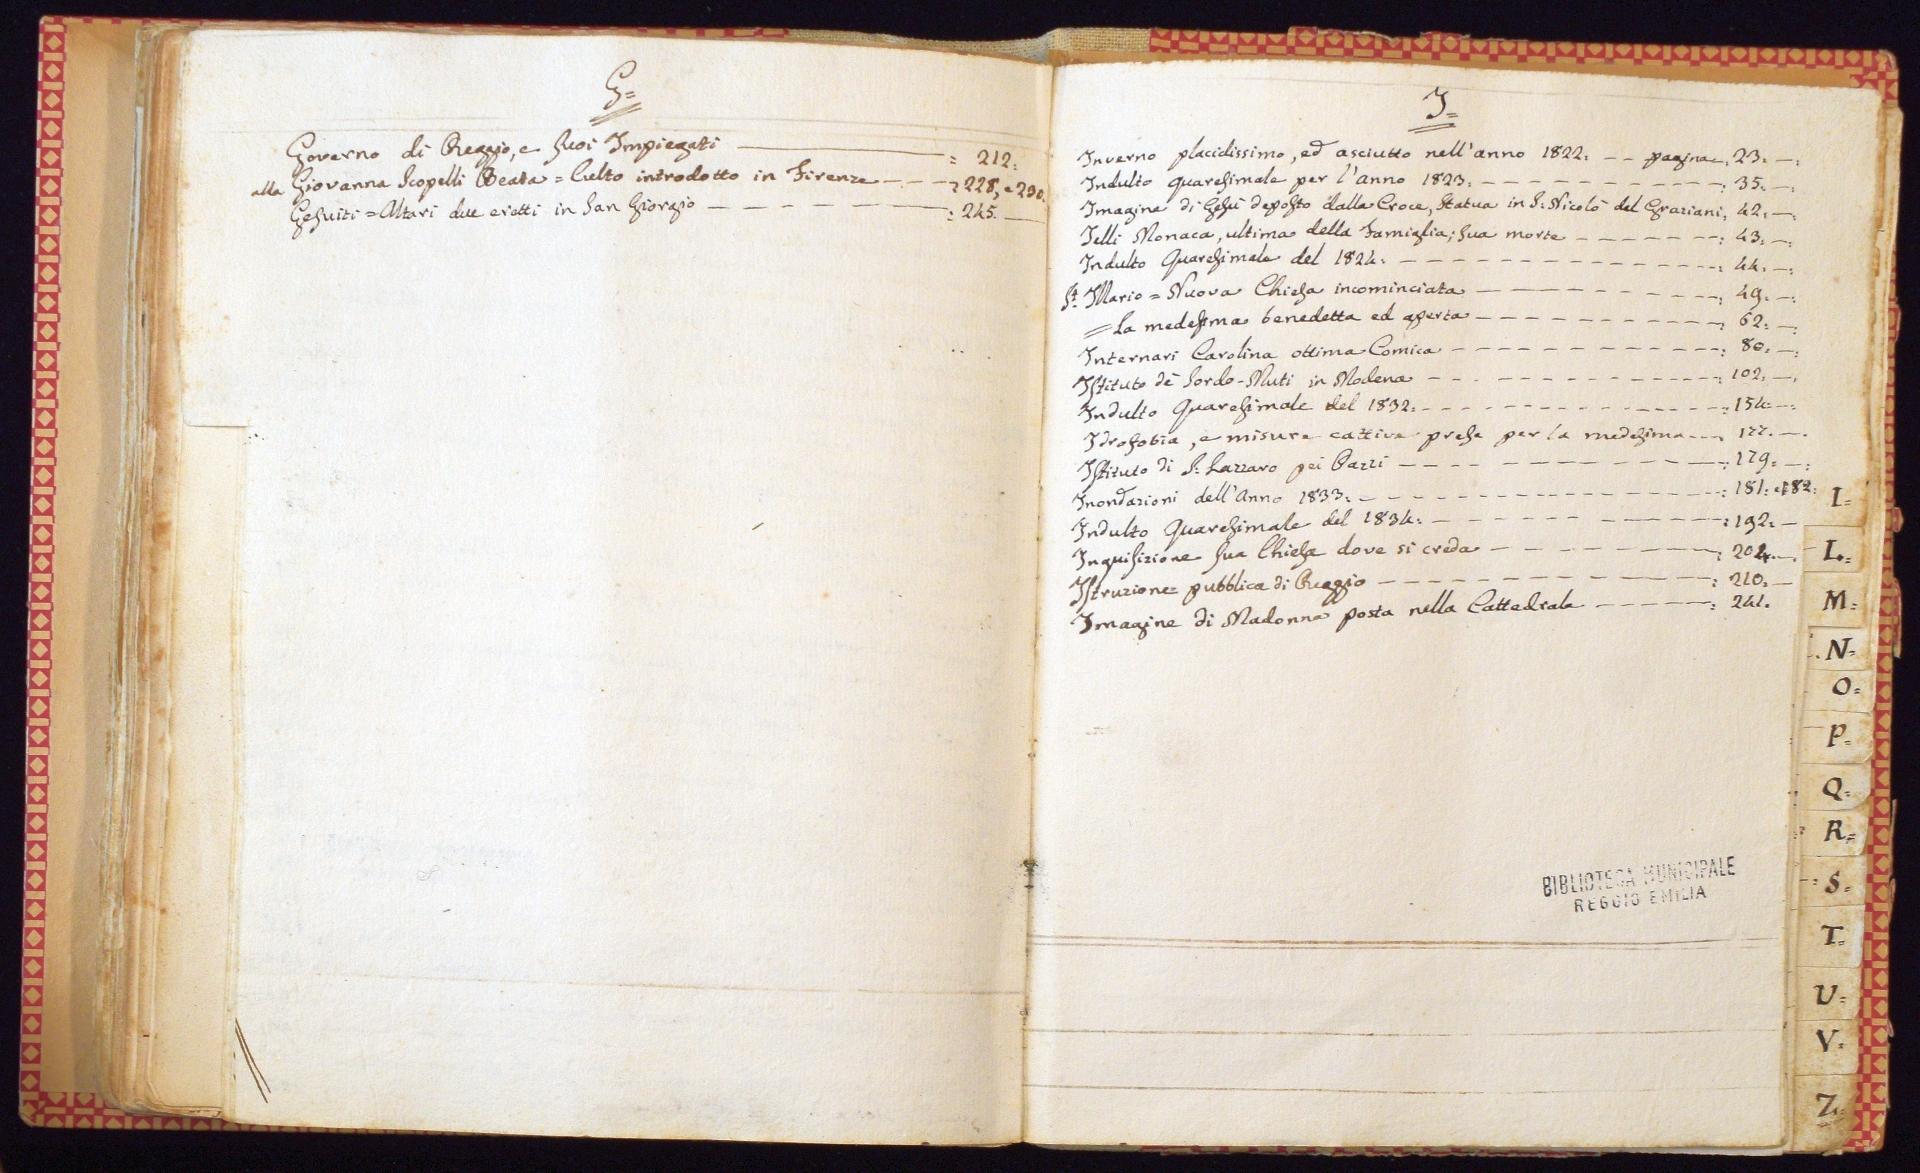 G=
Governo di Reggio, e suoi Impiegati = 212:
alla Giovanna Scopelli Beata = Culto introdotto in Firenze : 228, e 230.
Gesuiti = Altari due eretti in San Giorgio : 245.
I=
Inverno placidissimo, ed asciutto nell'anno 1822: pagina 23:
Indulto quaresimale per l'anno 1823: 35:
Imagine di Gesù deposto dalla Croce, Statua in S: Nicolò del Graziani, 42:
Jelli Monaca, ultima della Famiglia; sua morte : 43:
Indulto Quaresimale del 1824: : 44:
St. Ilario = Nuova Chiesa incominciata : 49:
= La medesima benedetta ed aperta : 62:
Internari Carolina ottima Comica : 80:
Istituto de' Sordo-Muti in Modena : 102:
Indulto Quaresimale del 1832: : 154:
Idrofobia, e misure cattive prese per la medesima 177:
Istituto di S: Lazzaro pei Pazzi : 179:
Inondazioni dell'Anno 1833: : 181: e 182:
Indulto Quaresimale del 1834: : 192:
Inquisizione sua Chiesa dove si creda : 204
Istruzione pubblica di Reggio : 210:
Imagine di Madonna posta nella Cattedrale : 241.
BIBLIOTECA MUNICIPALE
REGGIO EMILIA
I=
L=
M=
N=
O=
P=
Q=
R=
S=
T=
U=
V=
Z=